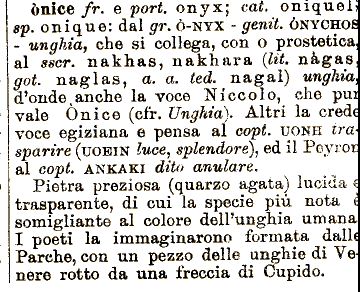 ònice fr. e port. onyx; cat. oniquel;
sp. onique: dal gr. Ò-NYX - genit. ÒNYCHOS
- unghia, che si collega, con o prostetica,
al sscr. nakhas, nakhara (lit. nàgas,
got. naglas, a. a. ted. nagal) unghia,
d'onde anche la voce Niccolo, che pur
vale Ònice (cfr. Unghia). Altri la crede
voce egiziana e pensa al copt. UONH tra-
sparire (UOEIN luce, splendore), ed il Peyron
al copt. ANKAKI dito anulare.
Pietra preziosa (quarzo agata) lucida e
trasparente, di cui la specie più nota è
somigliante al colore dell'unghia umana.
I poeti la immaginarono formata dalle
Parche, con un pezzo delle unghie di Ve-
nere rotto da una freccia di Cupido.